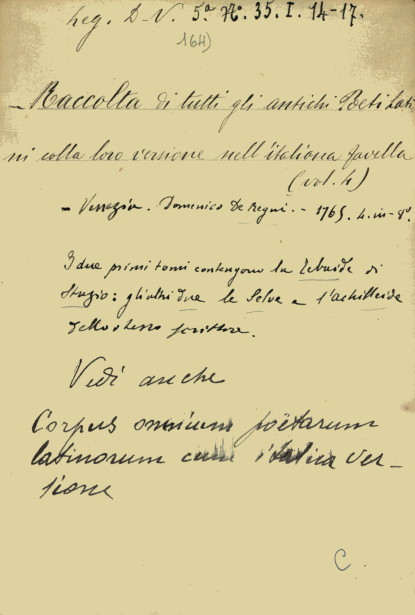 Leg. D-V. 5ª Nº. 35. I. 14-17.
164)
- Raccolta di tutti gli antichi Poeti Lati
ni colla loro versione nell'italiana favella
(vol. 4)
- Venezia. Domenico De Regni. - 1765. 4. in-8º.
I due primi tomi contengono la Tebaide di
Stazio: gli altri due le Selve e l'achilleide
dello stesso scrittore.
Vedi anche
Corpus omnium poëtarum
latinorum cum italica ver-
sione
C.